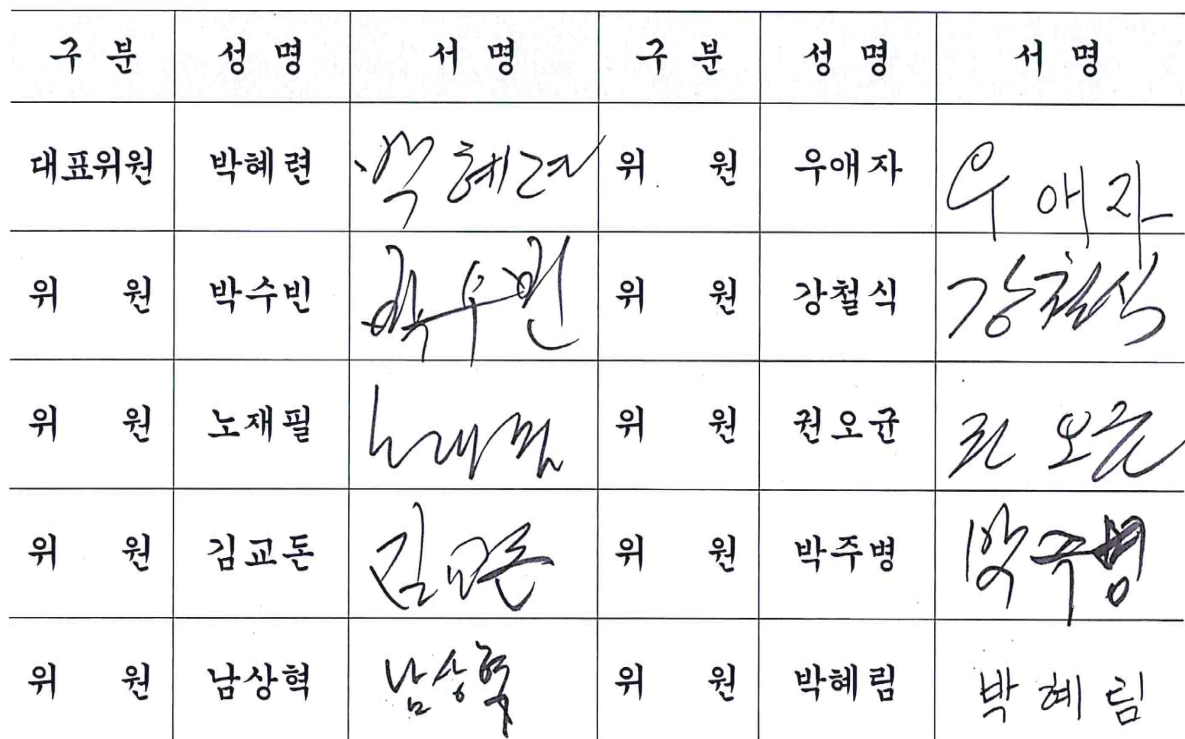 구 분 성 명 서 명 구 분 성 명 서 명
대표위원 박혜련 박혜련 위 원 우애자 우애자
위 원 박수빈 박수빈 위 원 강철식 강철식
위 원 노재필 노재필 위 원 권오균 권오균
위 원 김교돈 김교돈 위 원 박주병 박주병
위 원 남상혁 남상혁 위 원 박혜림 박혜림